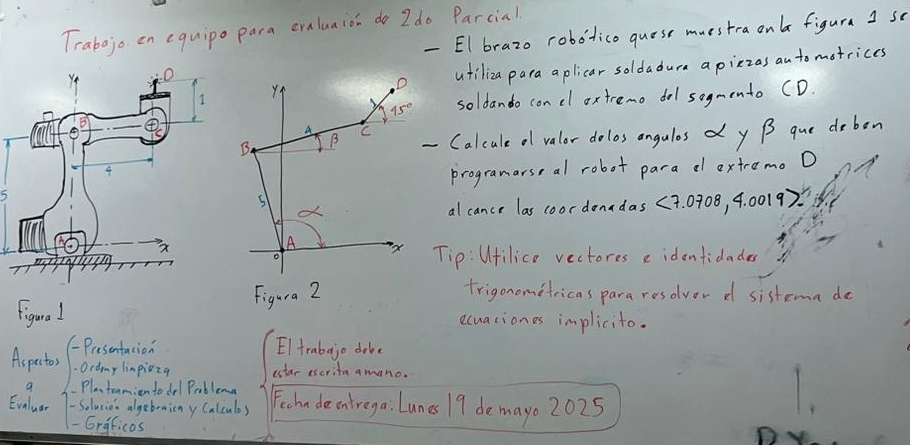 Trabajo en equipo para evaluaión de 2do Parcial.
- El brazo robótico quese muestra en la figura 1 se
utiliza para aplicar soldadura a piezas automotrices
soldando con el extremo del segmento CD.
- Calcule el valor delos angulos α y β que deben
programarse al robot para el extremo D
alcance las coordenadas <7.0708, 4.0019>.
Tip: Utilice vectores e identidades
trigonométricas para resolver el sistema de
ecuaciones implicito.
Y
D
1
B
C
4
5
A
X
Figura 1
Y
D
1
45°
C
4
β
B
5
α
A
0
X
Figura 2
Aspectos
a
Evaluar
- Presentación
- Orden y limpieza
- Planteamiento del Problema
- Solución algebraica y Calculos
- Gráficos
El trabajo debe
estar escrita a mano.
Fecha de entrega: Lunes 19 de mayo 2025